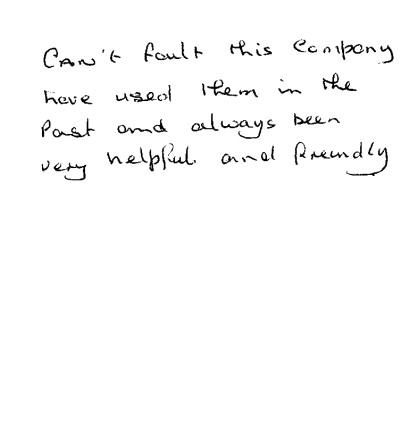 Can't fault this Company
have used them in the
Past and always been
very helpful and friendly